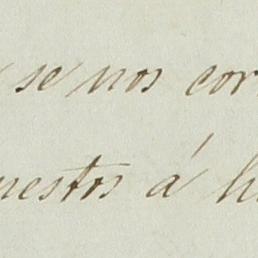 se nos cor
nestos á h